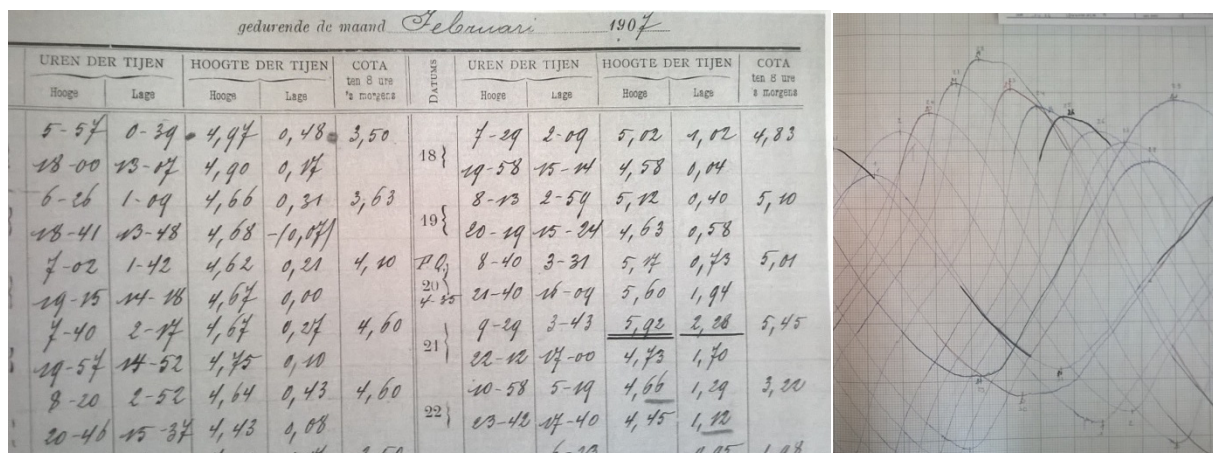 gedurende de maand Februari 1907
UREN DER TIJEN HOOGTE DER TIJEN COTA ten 8 ure 's morgens DATUMS UREN DER TIJEN HOOGTE DER TIJEN COTA ten 8 ure 's morgens
Hooge Lage Hooge Lage Hooge Lage Hooge Lage
5-57 0-39 4,97 0,48 3,50 18 7-29 2-09 5,02 1,02 4,83
18-00 13-07 4,90 0,17 19-58 15-14 4,58 0,04
6-26 1-09 4,66 0,31 3,63 19 8-13 2-59 5,12 0,40 5,10
18-41 13-48 4,68 -(0,07) 20-19 15-24 4,63 0,58
7-02 1-42 4,62 0,21 4,10 P.Q. 20 4-35 8-40 3-31 5,17 0,73 5,01
19-15 14-18 4,67 0,00 21-40 16-09 5,60 1,94
7-40 2-17 4,67 0,27 4,60 21 9-29 3-43 5,92 2,28 5,45
19-57 14-52 4,75 0,10 22-12 17-00 4,73 1,70
8-20 2-52 4,64 0,43 4,60 22 10-58 5-19 4,66 1,29 3,22
20-46 15-37 4,43 0,08 23-42 17-40 4,45 1,12